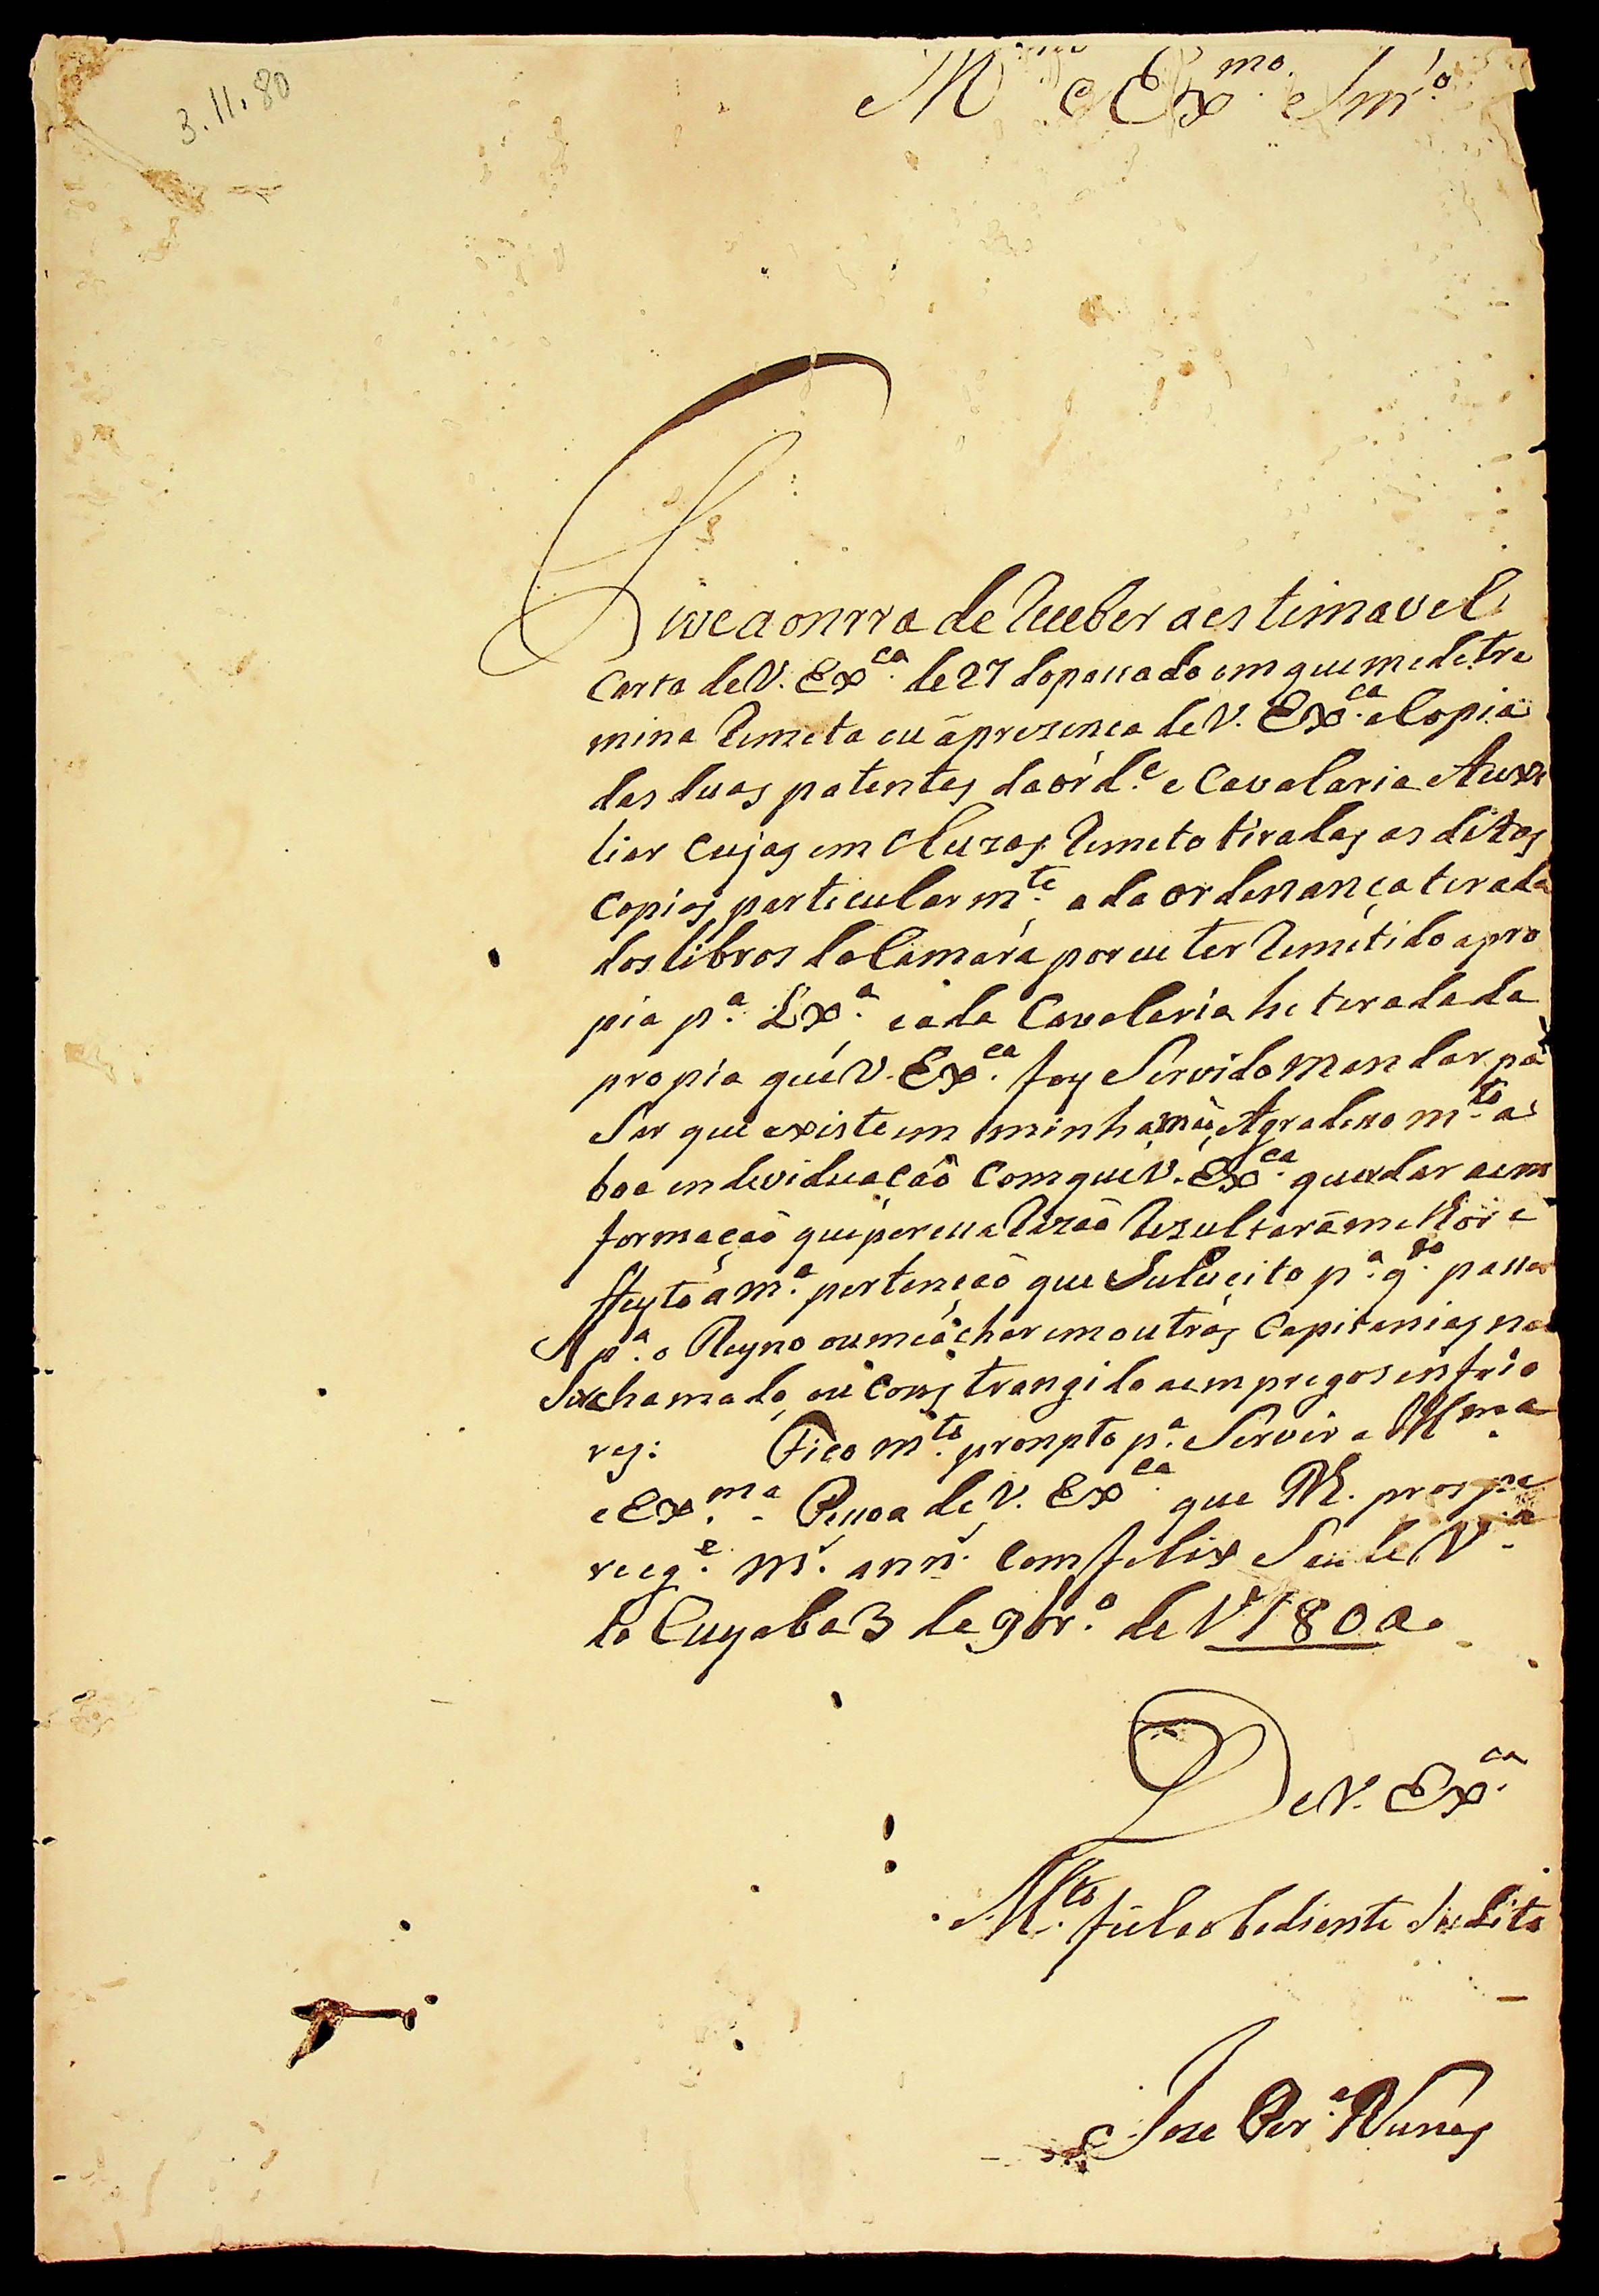 3.11.80
Ill.mo e Ex.mo Snr.o
Tive a onrra de Receber a estimavel
Carta de V. Ex.ca de 27 do passado em que me detre
mina Remeta eu á prezença de V. Ex.ca a Copia
das duas patentes da ord.e e Cavalaria Auxi
liar Cujas em cluzas Remeto tiradas as ditas
Copias particularm.te a da ordenança terada
dos libros da Camara por eu ter Remetido a pro
pia p.a Lx.a e a da Cavalaria he terada da
propia que V. Ex.ca foy Servido Mandar pa
sar que existe em minha maõ Agradeso m.to a
boa endeviduacaõ Com que V. Ex.ca quer dar a em
formaçaõ que por essa Razaõ Rezultará melhor e
ffeyto á m.a pertençaõ que Sulucito p.a q.do passar
p.a o Reyno ou me áchar em outras Capitanias naõ
Ser chamado ou Constrangido a empregos infrio
res: Fico m.to prompto p.a Servir a Ill.ma
e Ex.ma Pessoa de V. Ex.ca que D.s prospe
re e g.e m.s ann.s Com felix Saude V.a
do Cuyaba 3 de 9br.o de 1780 a.
De V. Ex.ca
M.to fiel e obediente Sudito
Joze Per.a Nunes